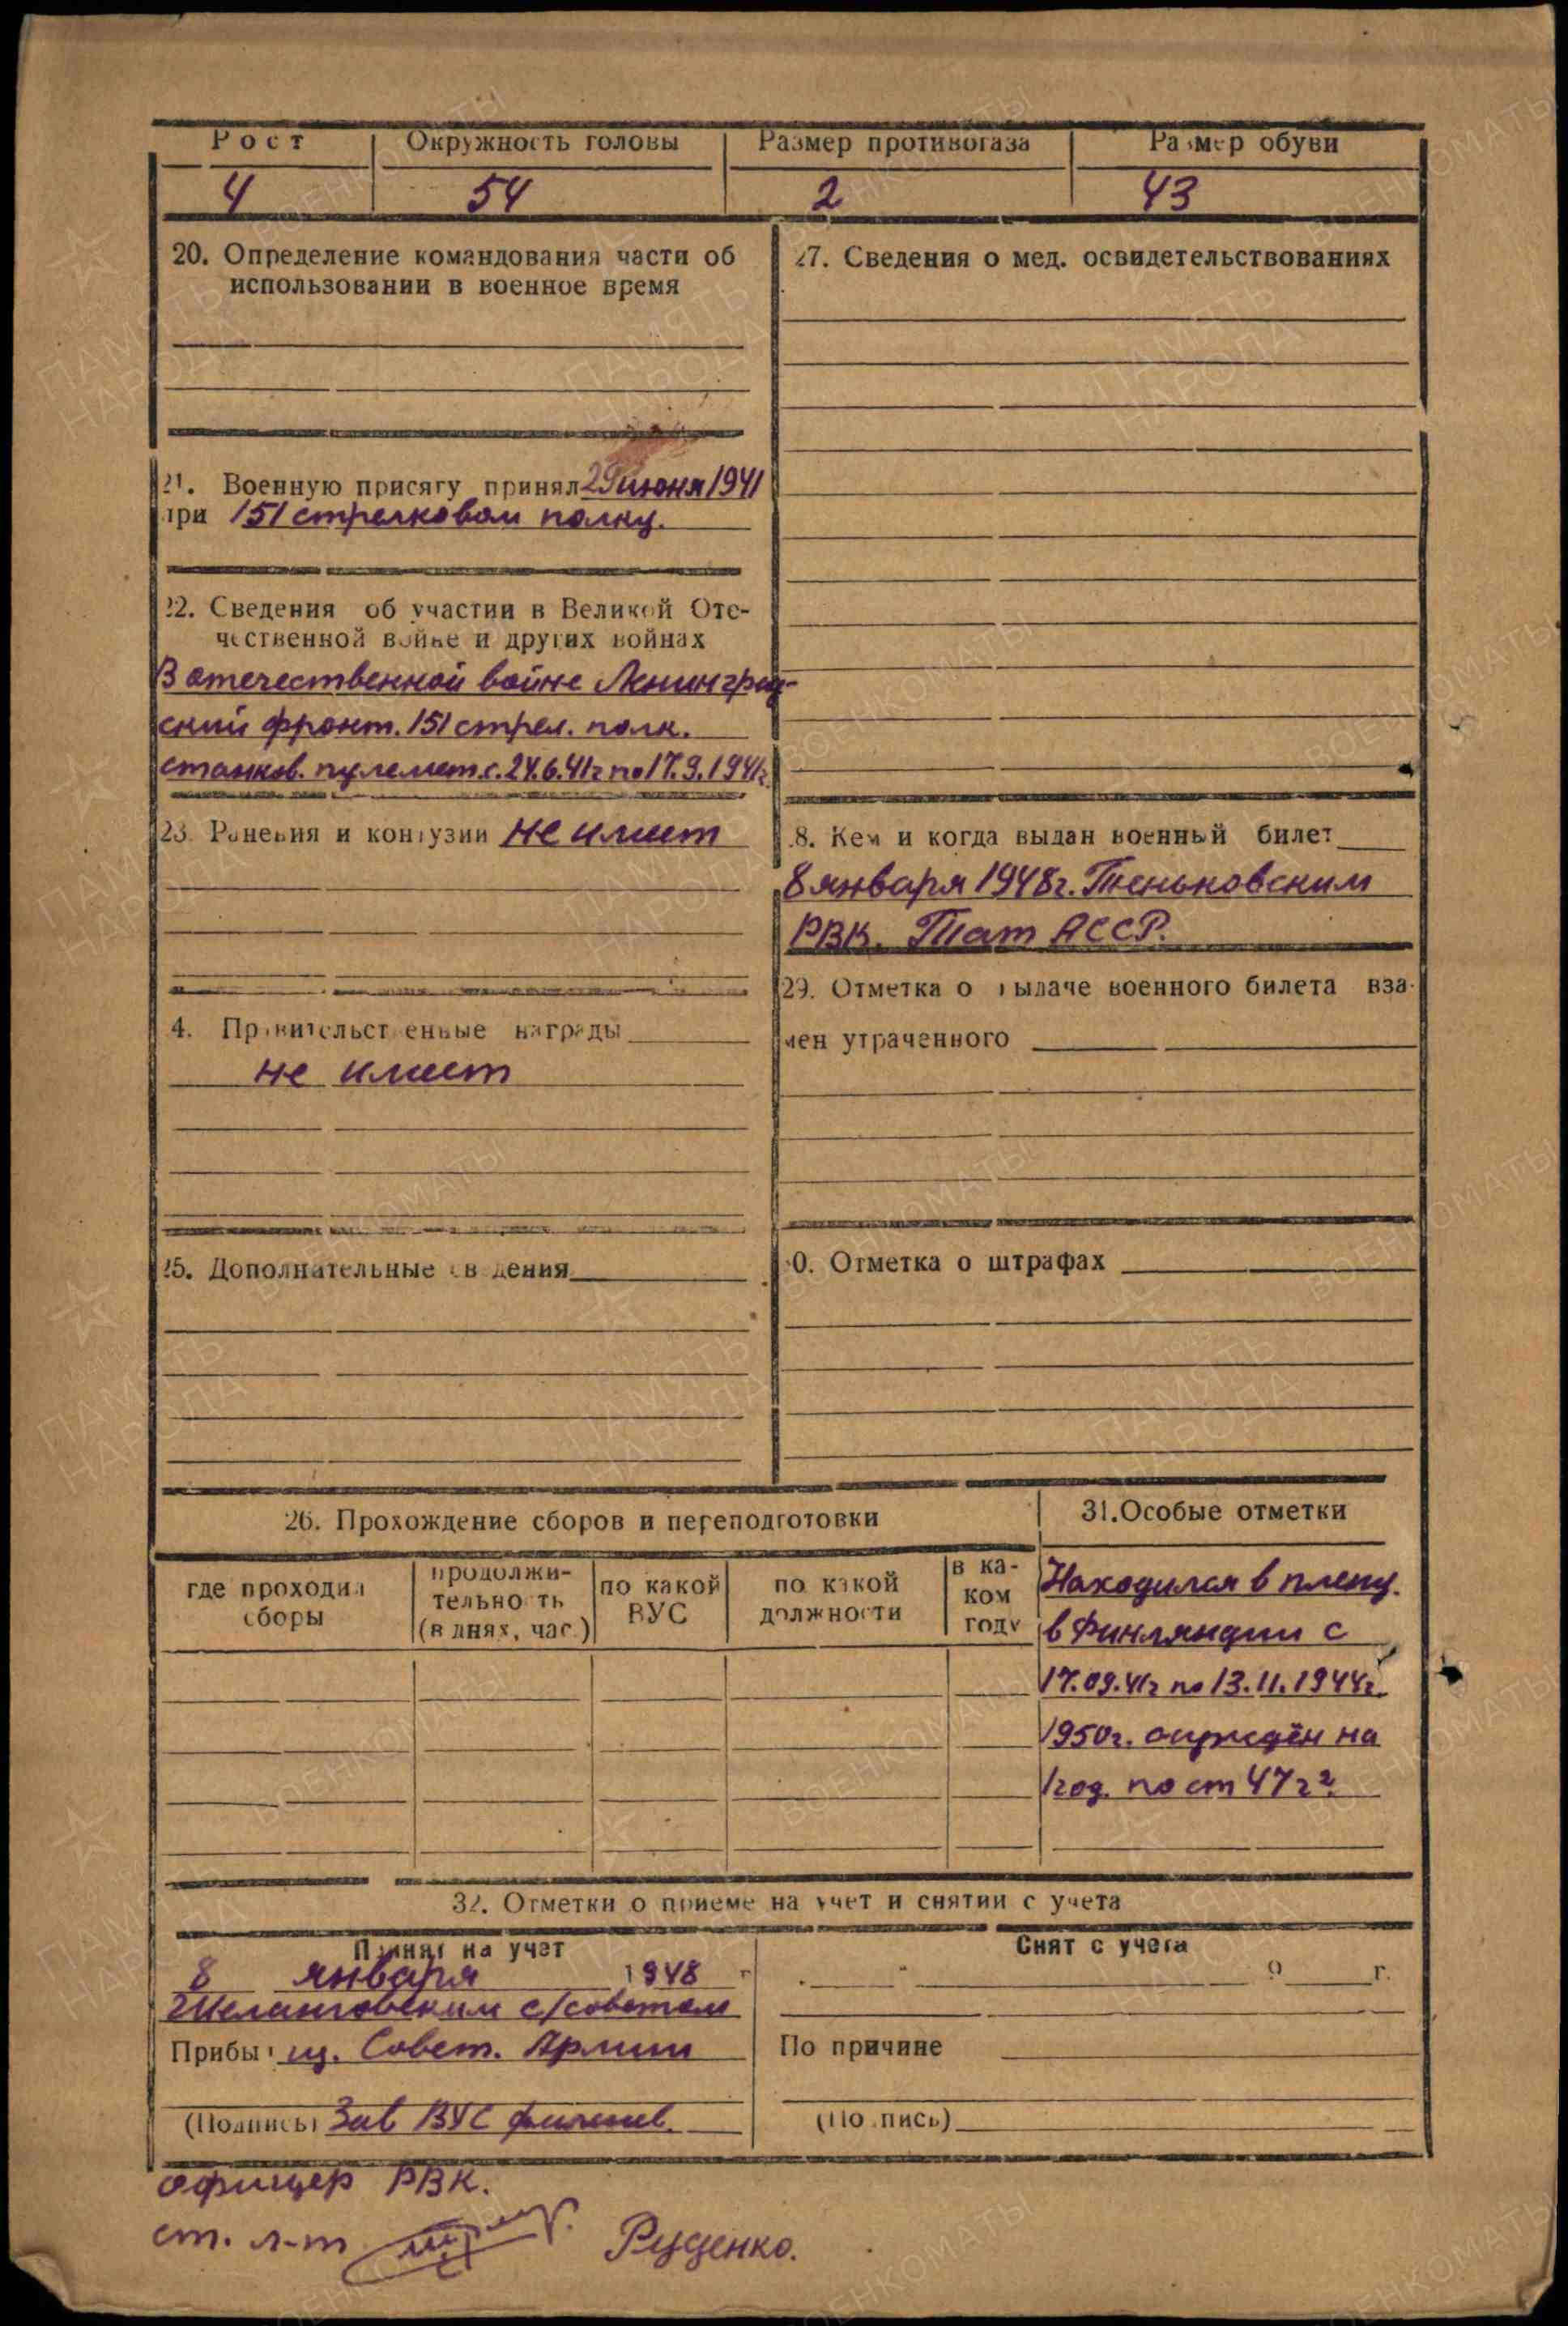 Рост Окружность головы Размер противогаза Размер обуви
4 54 2 43
20. Определение командования части об
использовании в военное время
21. Военную присягу принял 29 июня 1941
при 151 стрелковом полку.
22. Сведения об участии в Великой Оте-
чественной войне и других войнах
В отечественной войне Ленинград-
ский фронт. 151 стрел. полк.
станков. пулемет. с. 24.6.41г по 17.9.1941г.
23. Ранения и контузии не имеет
24. Правительственные награды
не имеет
25. Дополнительные сведения
27. Сведения о мед. освидетельствованиях
28. Кем и когда выдан военный билет
8 января 1948г. Теньковским
РВК. Тат АССР.
29. Отметка о выдаче военного билета вза-
мен утраченного
30. Отметка о штрафах
26. Прохождение сборов и переподготовки
где проходил
сборы
продолжи-
тельность
(в днях, час.)
по какой
ВУС
по какой
должности
в ка-
ком
году
31. Особые отметки
Находился в плену.
в Финляндии с
17.09.41г по 13.11.1944г.
1950г. осуждён на
1год. по ст 47
32. Отметки о приеме на учет и снятии с учета
Принят на учет
8 января 1948 г
с/советом
Прибыл из. Совет. Армии
(Подпись) Зав ВУС
Снят с учета
9 г.
По причине
(Подпись)
офицер РВК.
ст. л-т Руденко.
ПАМЯТЬ НАРОДА
ВОЕНКОМАТЫ